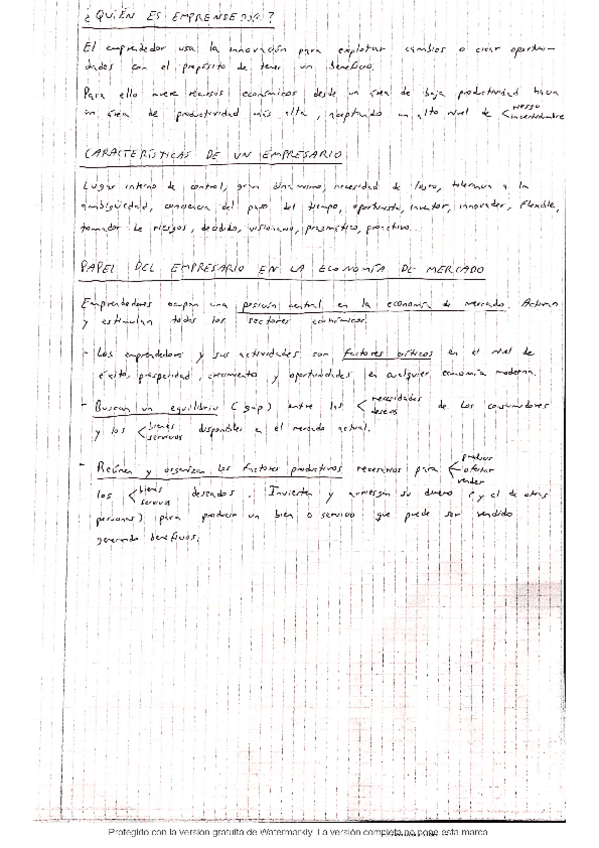 ¿QUIÉN ES EMPRENDEDOR?
El emprendedor usa la innovación para explotar cambios o crear oportuni-
dades con el propósito de tener un beneficio.
Para ello mueve recursos económicos desde un área de baja productividad hacia
un área de productividad más alta, aceptando un alto nivel de < riesgo
incertidumbre
CARACTERÍSTICAS DE UN EMPRESARIO
Lugar interno de control, gran dinamismo, necesidad de logro, tolerancia a la
ambigüedad, conciencia del paso del tiempo, oportunista, inventor, innovador, flexible,
tomador de riesgos, decidido, visionario, pragmático, proactivo...
PAPEL DEL EMPRESARIO EN LA ECONOMÍA DE MERCADO
Emprendedores ocupan una posición central en la economía de mercado. Activan
y estimulan todos los sectores económicos.
- Los emprendedores y sus actividades son factores críticos en el nivel de
éxito, prosperidad, crecimiento y oportunidades en cualquier economía moderna.
- Buscan un equilibrio (gap) entre las < necesidades
deseos
de los consumidores
y los < bienes
servicios
disponibles en el mercado actual.
- Reúnen y organizan los factores productivos necesarios para < probar
ofertar
vender
los < bienes
servicios
deseados. Invierten y arriesgan su dinero (y el de otras
personas) para producir un bien o servicio que puede ser vendido
generando beneficios.
Protegido con la versión gratuita de Watermarkly. La versión completa no pone esta marca.